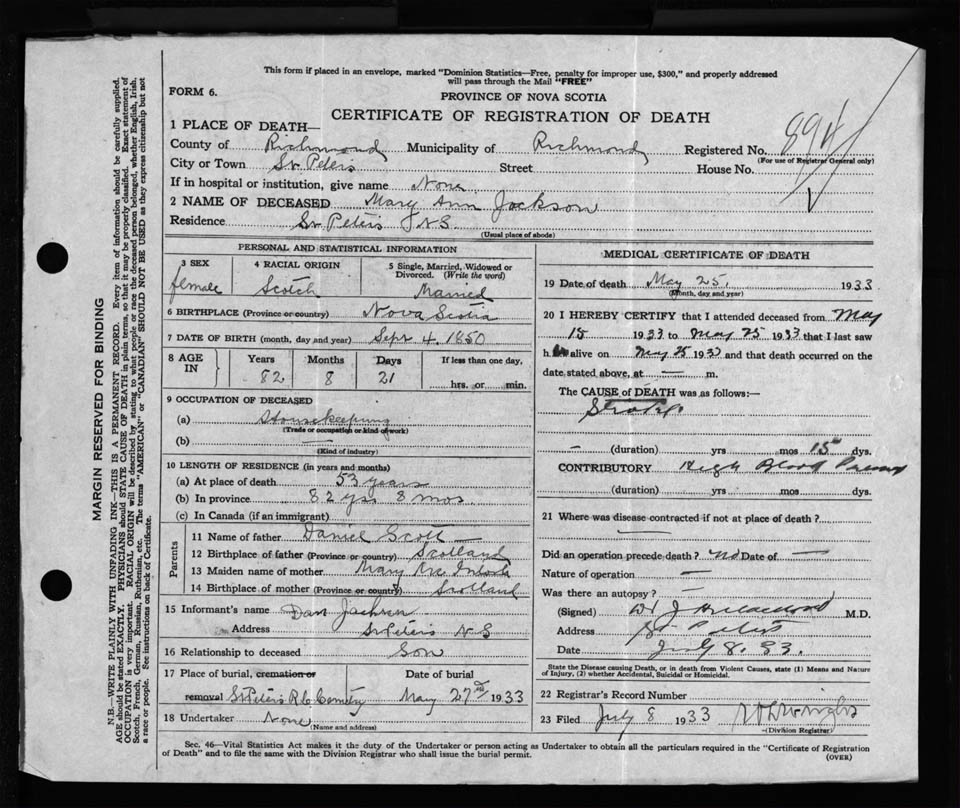 This form if placed in an envelope, marked "Dominion Statistics—Free, penalty for improper use, $300," and properly addressed
will pass through the Mail "FREE"
FORM 6.
PROVINCE OF NOVA SCOTIA
CERTIFICATE OF REGISTRATION OF DEATH
1 PLACE OF DEATH—
County of Richmond Municipality of Richmond Registered No. 894
(For use of Registrar General only)
City or Town St. Peters Street House No.
If in hospital or institution, give name None
2 NAME OF DECEASED Mary Ann Jackson
Residence St. Peters N S
(Usual place of abode)
PERSONAL AND STATISTICAL INFORMATION
3 SEX 4 RACIAL ORIGIN 5 Single, Married, Widowed or
Divorced. (Write the word)
female Scotch Married
6 BIRTHPLACE (Province or country) Nova Scotia
7 DATE OF BIRTH (month, day and year) Sept 4 1850
8 AGE IN Years Months Days If less than one day,
82 8 21 hrs. or min.
9 OCCUPATION OF DECEASED
(a) Housekeeping
(Trade or occupation or kind of work)
(b) —
(Kind of industry)
10 LENGTH OF RESIDENCE (in years and months)
(a) At place of death 53 years
(b) In province 82 yrs 8 mos
(c) In Canada (if an immigrant)
Parents
11 Name of father Daniel Scott —
12 Birthplace of father (Province or country) Scotland
13 Maiden name of mother Mary
14 Birthplace of mother (Province or country) Scotland
15 Informant's name Dan Jackson
Address St Peters N S
16 Relationship to deceased Son
17 Place of burial, cremation or Date of burial
removal St Peters R. C. Cemetry May 27th 1933
18 Undertaker None
(Name and address)
MEDICAL CERTIFICATE OF DEATH
19 Date of death May 25, 1933
(Month, day and year)
20 I HEREBY CERTIFY that I attended deceased from May
15 1933 to May 25 1933 that I last saw
h alive on May 25 1933 and that death occurred on the
date stated above, at — m.
The CAUSE of DEATH was as follows:—
Stroke
— (duration) yrs mos 15 dys.
CONTRIBUTORY High Blood Pressure
(duration) yrs mos dys.
21 Where was disease contracted if not at place of death?
—
Did an operation precede death? no Date of —
Nature of operation —
Was there an autopsy? —
(Signed) M.D.
Address St Peters
Date July 8. 33.
State the Disease causing Death, or in death from Violent Causes, state (1) Means and Nature
of Injury, (2) whether Accidental, Suicidal or Homicidal.
22 Registrar's Record Number
23 Filed July 8 1933
(Division Registrar)
Sec. 46—Vital Statistics Act makes it the duty of the Undertaker or person acting as Undertaker to obtain all the particulars required in the "Certificate of Registration
of Death" and to file the same with the Division Registrar who shall issue the burial permit. (OVER)
MARGIN RESERVED FOR BINDING
N.B.—WRITE PLAINLY WITH UNFADING INK—THIS IS A PERMANENT RECORD. Every item of information should be carefully supplied.
AGE should be stated EXACTLY. PHYSICIANS should STATE CAUSE OF DEATH in plain terms, so that it may be properly classified. Exact statement of
OCCUPATION is very important. RACIAL ORIGIN will be described by stating to what people or race the deceased person belonged, whether English, Irish,
Scotch, French, German, Russian, Ruthenian, etc. The terms "AMERICAN" or "CANADIAN" SHOULD NOT BE USED as they express citizenship but not
a race or people. See instructions on back of Certificate.